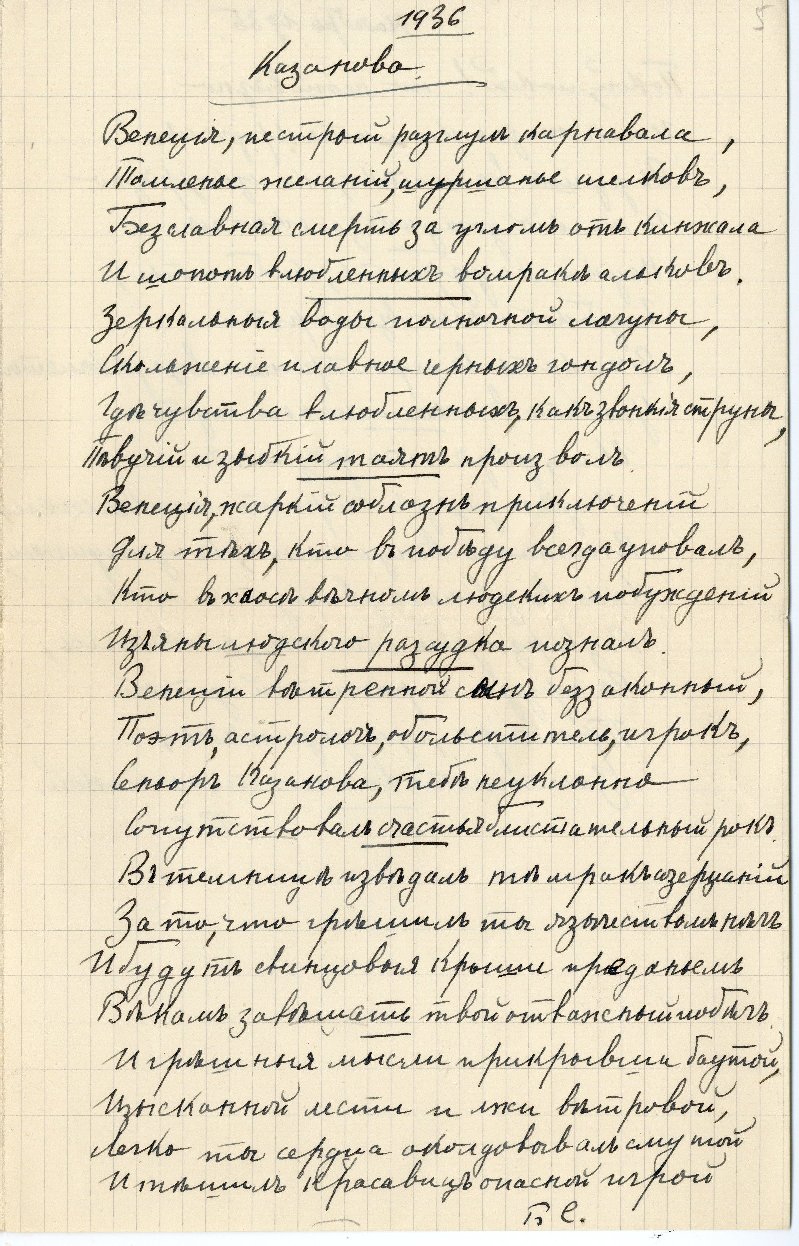 1936
5
Казанова.
Венецiя, пестрый разгулъ карнавала,
Томленье желанiй, шуршанье шелковъ,
Безславная смерть за угломъ отъ кинжала
И шопотъ влюбленныхъ во мракѣ альковъ.
Зеркальныя воды полночной лагуны,
Скольженiе плавное черныхъ гондолъ,
Гдѣ чувства влюбленныхъ, какъ звонкiя струны,
Пѣвучiй и зыбкiй таятъ произволъ.
Венецiя, жаркiй соблазнъ приключенiй
Для тѣхъ, кто въ побѣду всегда уповалъ,
Кто въ хаосѣ вѣчномъ людскихъ побужденiй
Изъяны людского разсудка позналъ.
Венецiи вѣтренной сынъ беззаконный,
Поэтъ, астрологъ, обольститель, игрокъ,
Сеньоръ Казанова, тебѣ неуклонно
Сопутствовалъ счастья блистательный рокъ.
Въ темницѣ извѣдалъ ты мракъ созерцанiй
За то, что грѣшилъ ты язычествомъ нѣгъ
И будутъ свинцовыя крыши преданьемъ
Вѣкамъ завѣщать твой отважный побѣгъ.
И грѣшныя мысли прикрывши баутой,
Изысканной лести и лжи вѣтровой,
Легко ты сердца околдовывалъ смутой
И тѣшилъ красавицъ опасной игрой
Б С.